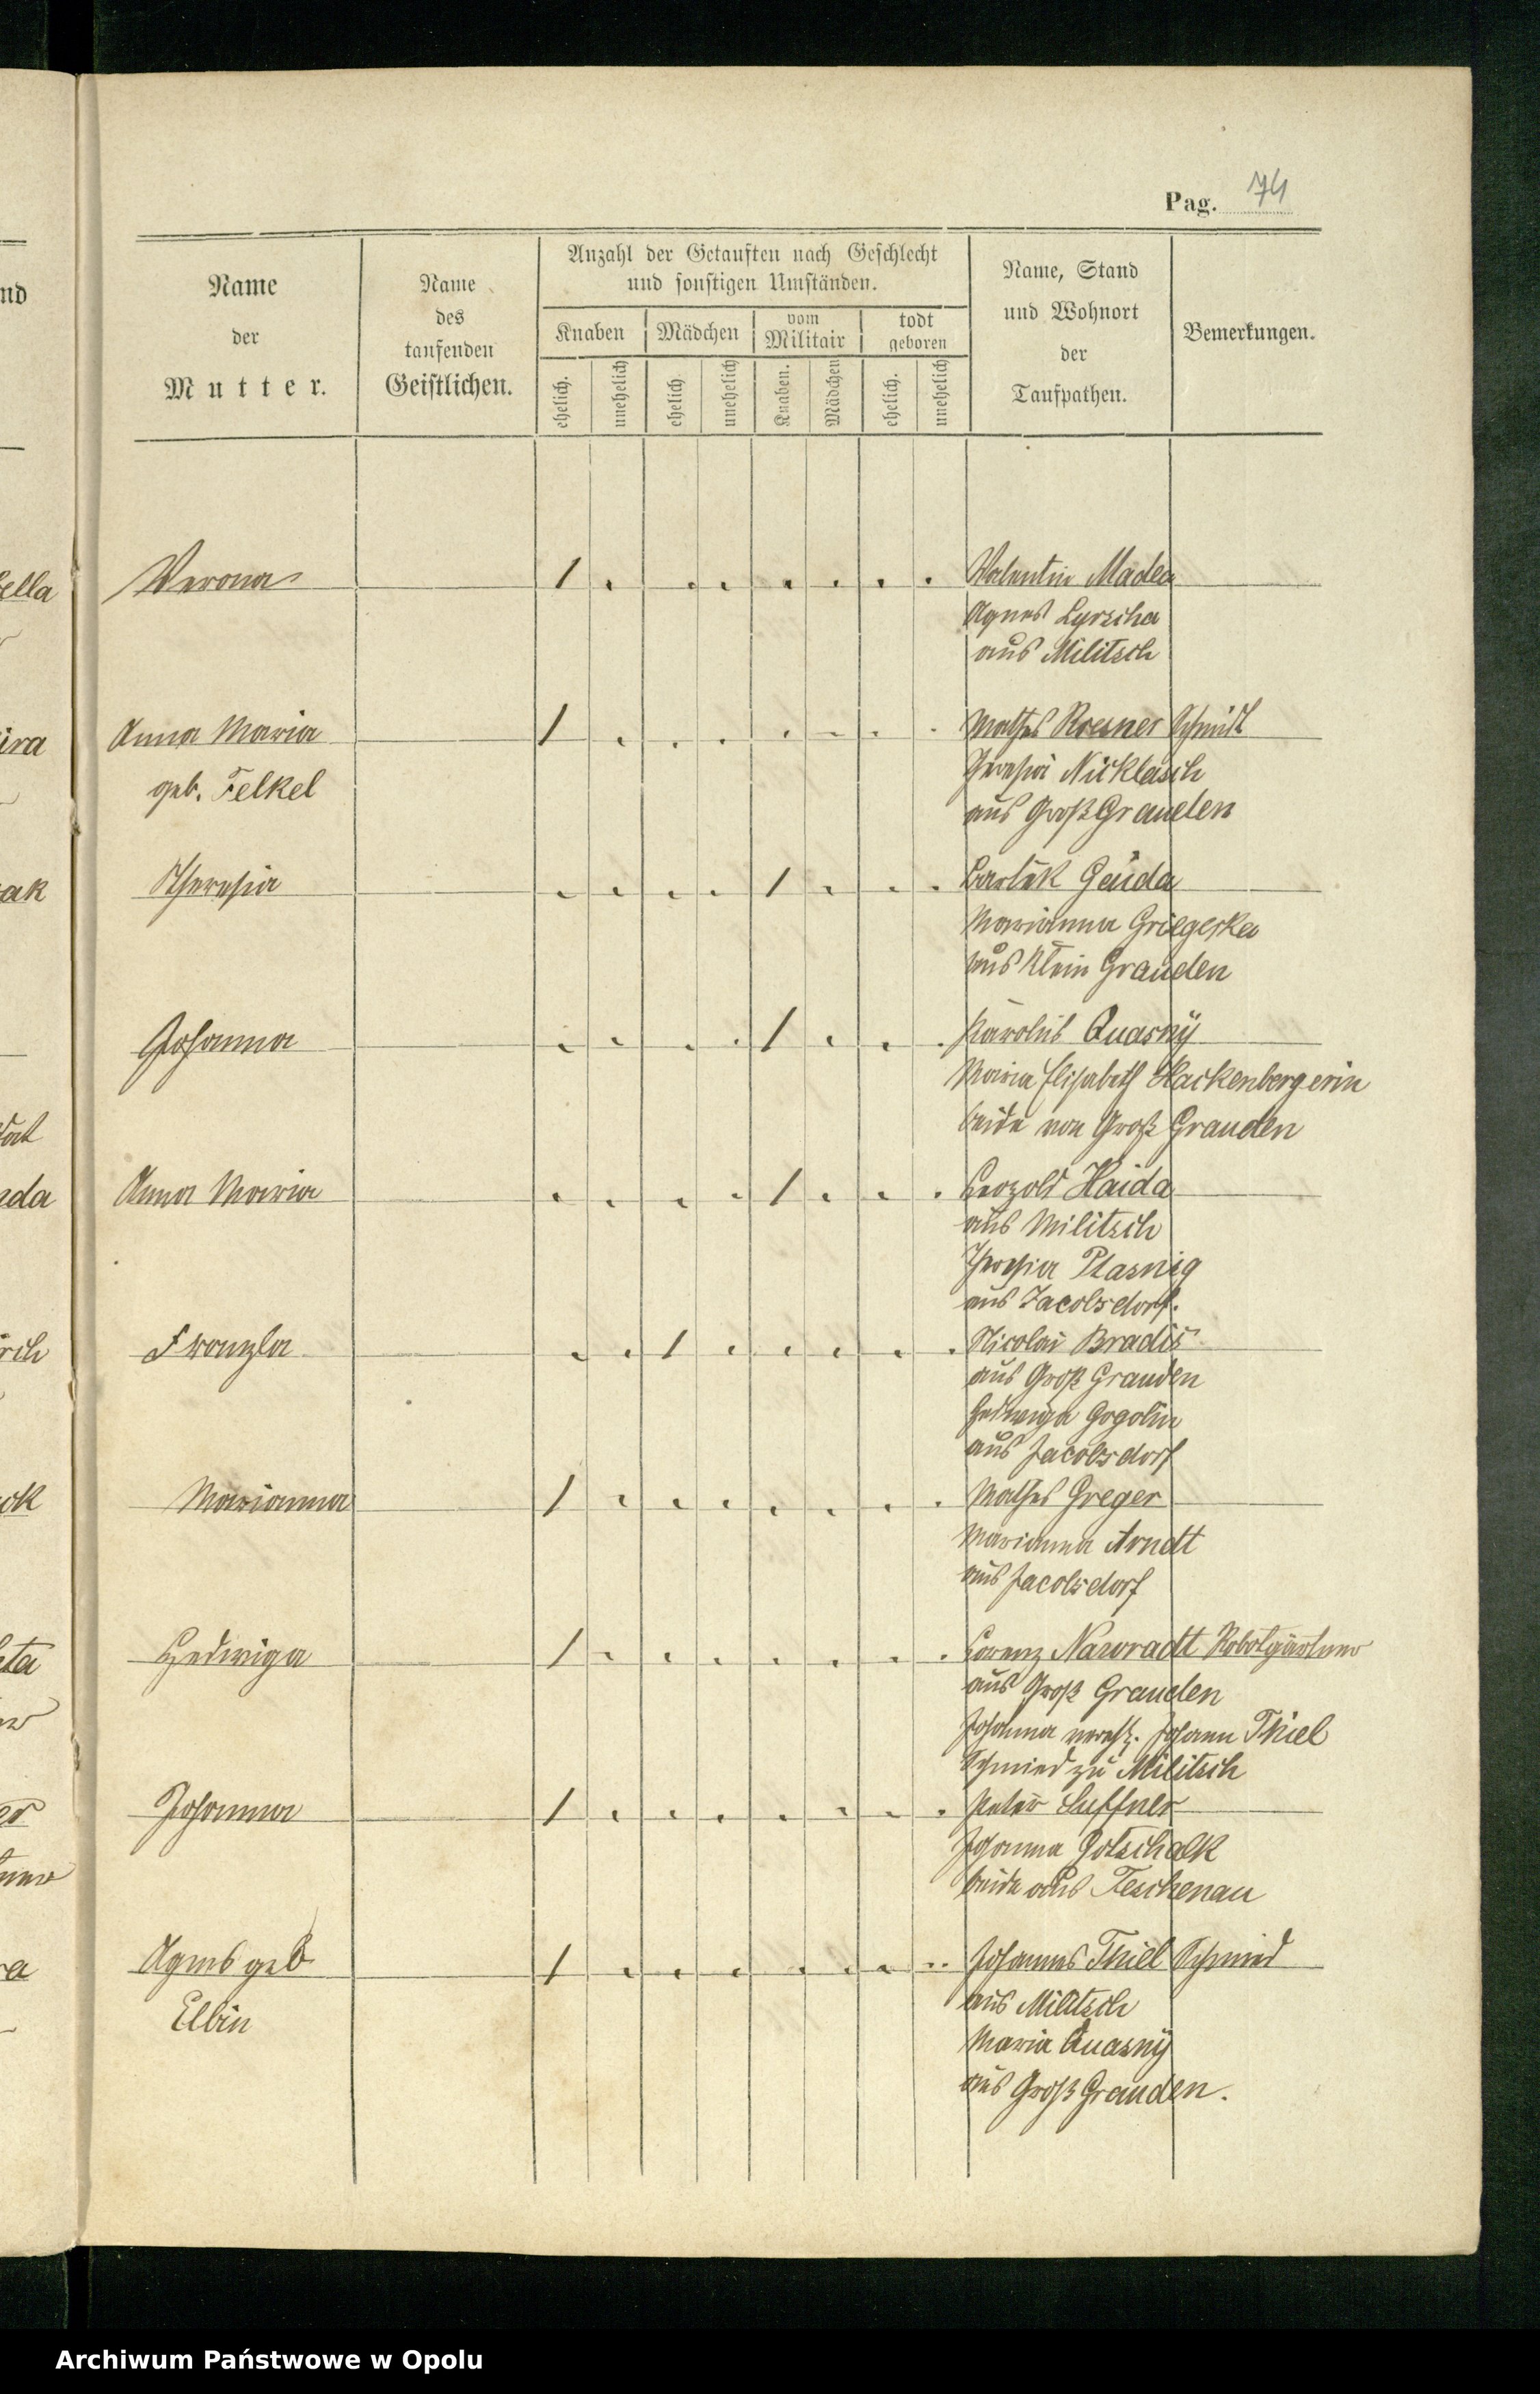 Pag. 74
Name
der
Mutter.
Name
des
taufenden
Geistlichen.
Anzahl der Getauften nach Geschlecht
und sonstigen Umständen.
Knaben
Mädchen
vom
Militair
todt
geboren
ehelich.
unehelich
ehelich
unehelich
Knaben.
Mädchen
ehelich.
unehelich
Name, Stand
und Wohnort
der
Taufpathen.
Bemerkungen.
nd
Verona 1 Valentin Madea
Agnes Lyrscha
aus Militsch
Anna Maria 1 Mathes Roesner Schmidt
geb. Felkel
Theresia Nicklasch
aus Groß Grauden
Theresia 1 Bartek Gaida
Marianna Griegerka
aus Klein Grauden
Johanna 1 Karolus Quasny
Maria Elisabeth Hackenbergerin
beide von Groß Grauden
Anna Maria 1 Leopold Haida
aus Militsch
Theresia Plasnig
aus Jacobsdorf.
Franzla 1 Nicolai Bradis
aus Groß Grauden
Hedwiga Gogolin
aus Jacobsdorf
Marianna 1 Mathes Greger
Marianna Arndt
aus Jacobsdorf
Hedwiga 1 Lorenz Nawradt Robotgärtner
aus Groß Grauden
Johanna Johann Thiel
Schmied zu Militsch
Johanna 1 Peter Suffner
Johanna Gotschalk
beide aus Teschenau
Agnes geb 1 Johannes Thiel Schmied
Elbin
aus Militsch
Maria Quasny
aus Groß Grauden.
Archiwum Państwowe w Opolu